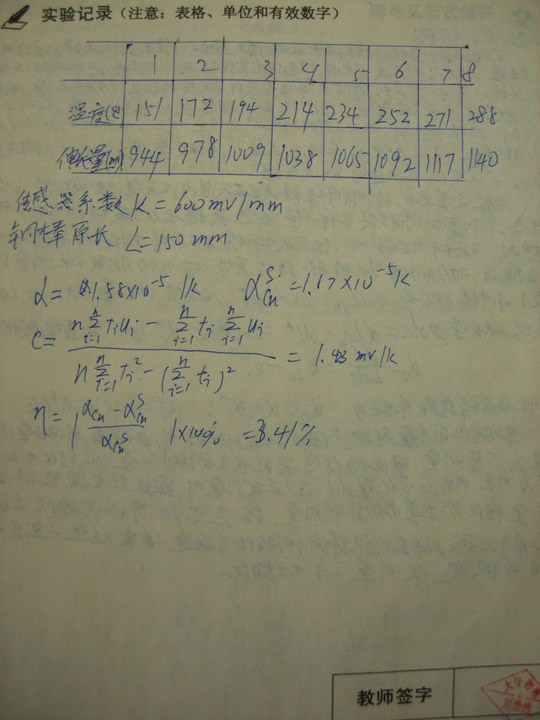 实验记录（注意：表格、单位和有效数字）
1 2 3 4 5 6 7 8
温度(℃) 151 172 194 214 234 252 271 288
伸长量(mv) 944 978 1009 1038 1065 1092 1117 1140
传感器系数 K = 600 mv/mm
铜棒原长 L = 150 mm
α = 1.58×10⁻⁵ /K α_Cu^S = 1.67×10⁻⁵ /K
C = (n Σ_{i=1}^{n} t_i u_i − Σ_{i=1}^{n} t_i Σ_{i=1}^{n} u_i) / (n Σ_{i=1}^{n} t_i² − (Σ_{i=1}^{n} t_i)²) = 1.43 mv/k
η = | (α_Cu − α_Cu^S) / α_Cu^S | × 100% = 3.41%
教师签字